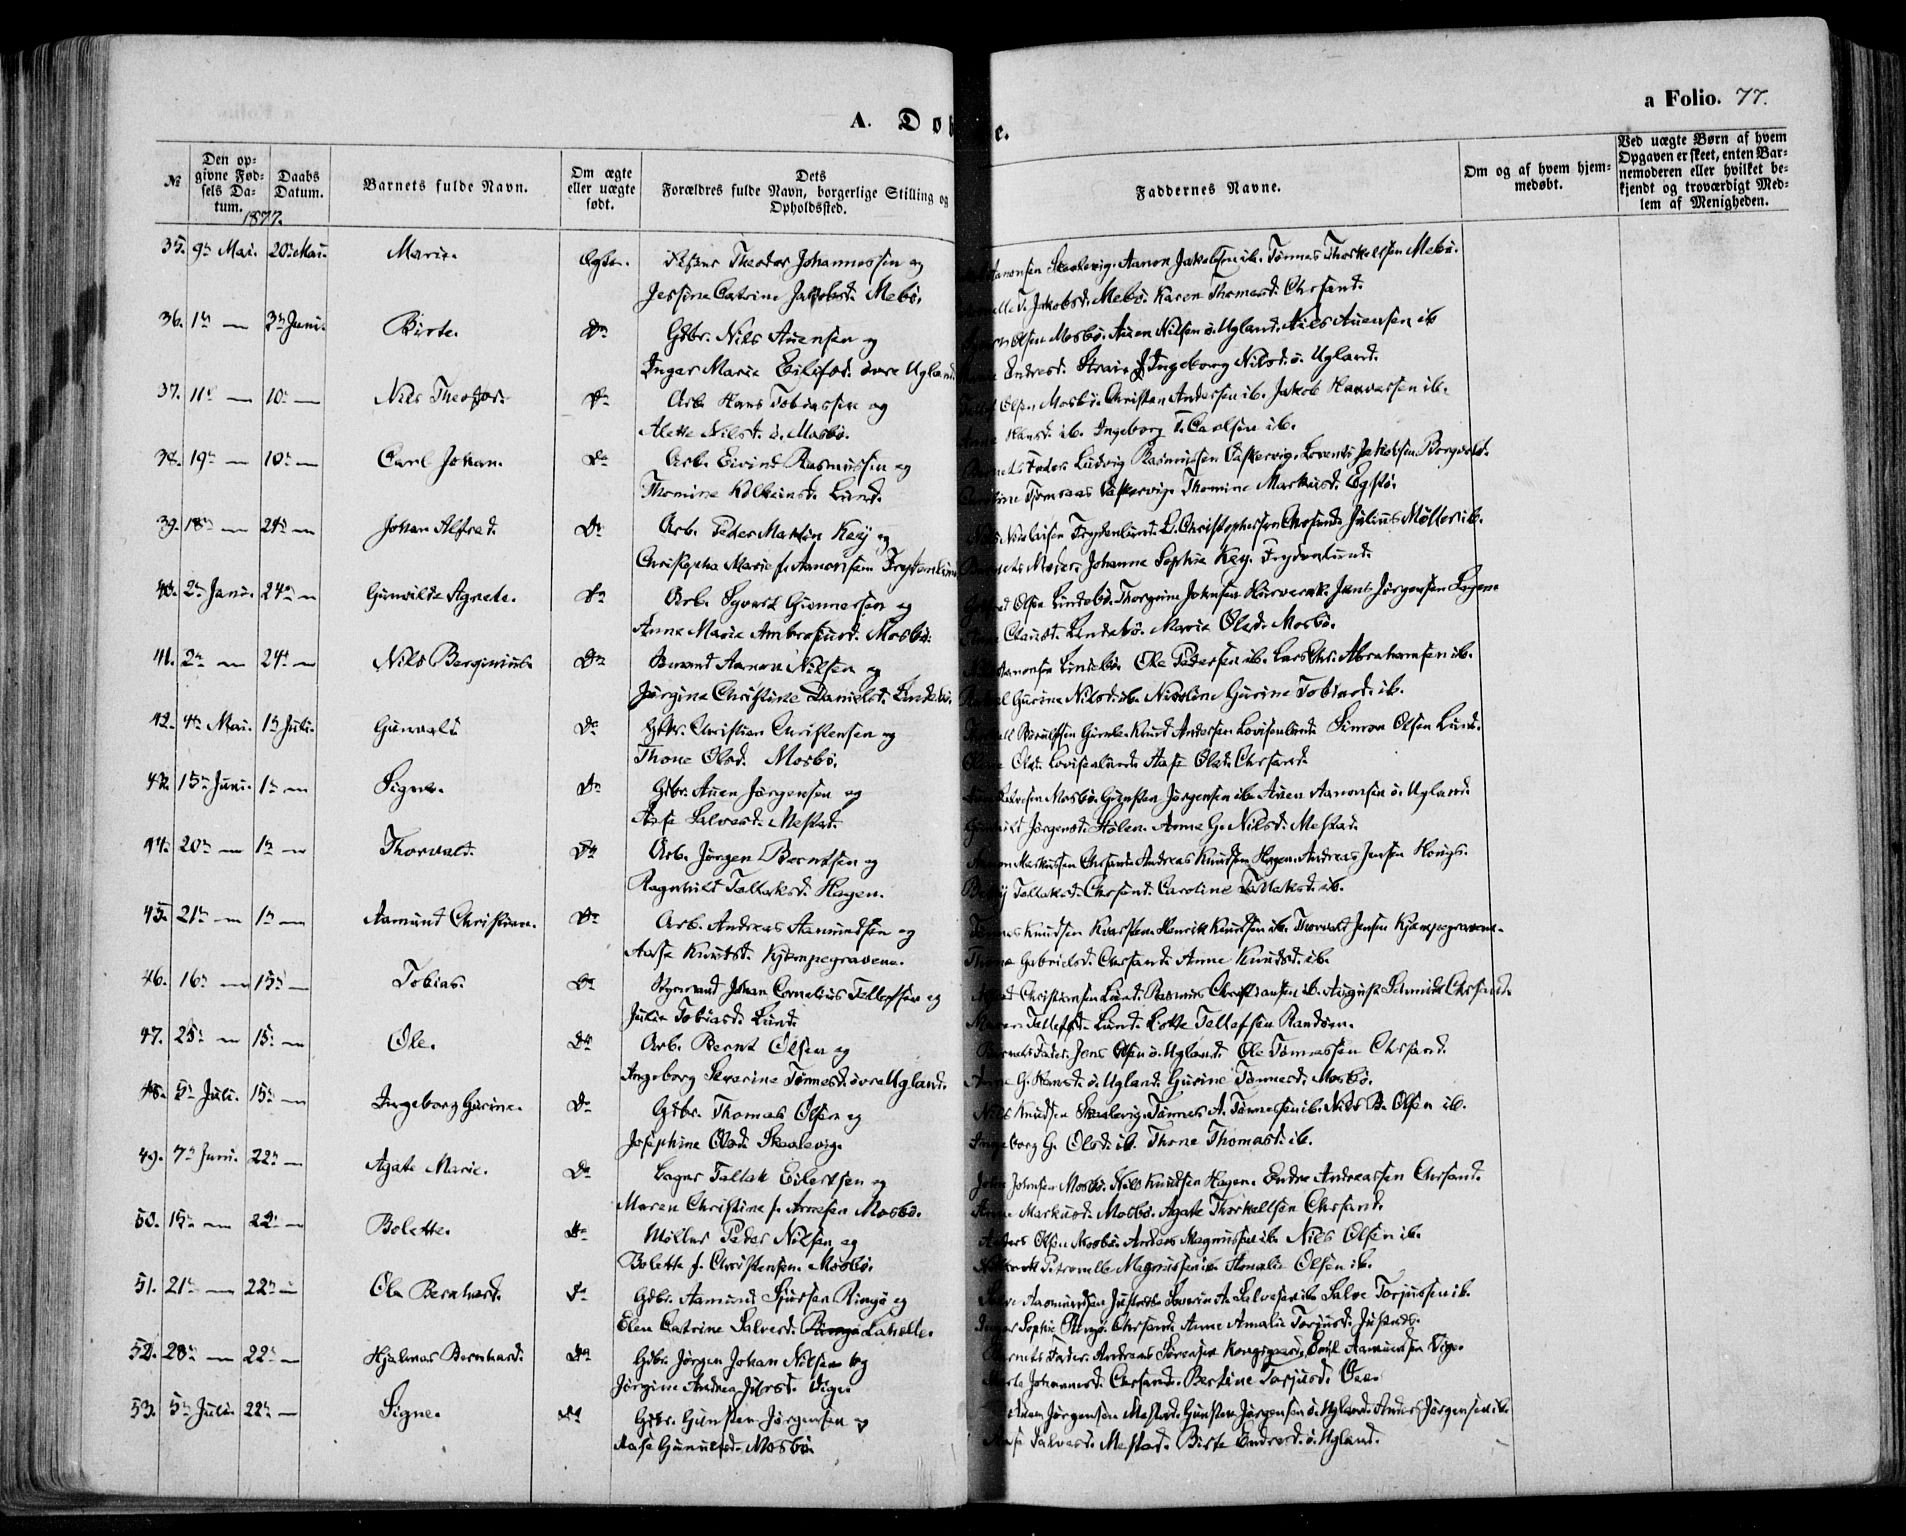 A. Døbte.
a Folio. 77.
№
Den opgivne Fødsels Datum.
Daabs Datum.
Barnets fulde Navn.
Om ægte eller uægte født.
Dets Forældres fulde Navn, borgerlige Stilling og Opholdssted.
Faddernes Navne.
Om og af hvem hjemmedøbt.
Ved uægte Børn af hvem Opgaven er skeet, enten Barnemoderen eller hvilket bekjendt og troværdigt Medlem af Menigheden.
1877.
35. 9de Mai. 20de Mai. Marie. Ægte. Theodor Johannessen og
Jessine Catrine Jakobsd. Mebø.
Aanonsen Skaalevig. Aanon Jakobsen ib. Tønnes Thorkelsen Mebø.
T. Jakobsd. Mebø. Karen Thomasd. Chrsand.
36. 1ste — 3die Juni. Birte. Do Gdbr. Nils Auensen og
Inger Marie Eilefsd. øvre Ugland.
Olsen Mosbø. Auen Nilsen ø. Ugland. Nils Auensen ib
Endresd. Straie. Ingeborg Nilsd. ø. Ugland.
37. 11te — 10de — Nils Theodor. Do Arb. Hans Tobiassen og
Alette Nilsd. ø. Mosbø.
Olsen Mosbø. Christen Andersen ib. Jakob Haavarsen ib.
Hansd. ib. Ingeborg T. Carlsen ib.
38. 19de — 10de — Carl Johan. Do Arb. Eivind Rasmussen og
Thomine Kolbeinsd. Lund.
Barnets Fader. Ludvig Rasmussen Vaskervig. Lorents Jakobsen Borgvold.
Tønnesens Vaskervig. Thomine Markusd. Egstø.
39. 18de — 24de — Johan Alfred. Do Arb. Peder Martin Keÿ og
Christopha Marie f. Aanonsen Frydenlund
Nicolaisen Frydenlund. L. Christophersen Chrsand. Julius Møller ib.
Barnets Moder. Johanne Sophie Keÿ. Frydenlund.
40. 2den Juni. 24de — Gunvilde Agnete. Do Arb. Syvert Gunnersen og
Anne Marie Ambrosiusd. Mosbø.
Olsen Lindebø. Thorgrim Johnsen Hurverak. Jens Jørgensen
Clausd. Lindebø. Marie Olsd. Mosbø.
41. 2den — 24de — Nils Berginius. Do Aanon Nilsen og
Jørgine Christine Danielsd. Lindebø.
Aanonsen Lindebø. Ole Pedersen ib. Lars Chr. Abrahamsen ib.
Gurine Nilsd. ib. Nicoline Gurine Tobiasd. ib.
42. 4de Mai. 1ste Juli. Gunvald Do Gdbr. Christian Christensen og
Thone Olsd. Mosbø.
Knud Andersen Lovisenlund. Simon Olsen Lund.
Olsd. Lovisenlund. Aase Olsd. Chrsand.
43. 15de Juni. 1ste — Signe. Do Gdbr. Auen Jørgensen og
Aase Salvesd. Mestad.
Mosbø. Gunsten Jørgensen ib. Auen Aanonsen ø. Ugland.
Jørgensd. Stølen. Anne G. Nilsd. Mestad.
44. 20de — 1ste — Thorvald. Do Arb. Jørgen Berntsen og
Ragnhild Tallaksd. Hagen.
Markussen Chrsand. Andreas Knudsen Hagen. Andreas Jensen Kongs.
Tallaksd. Chrsand. Caroline Tallaksd. ib.
45. 21de — 1ste — Aamund Christian. Do Arb. Andreas Aamundsen og
Aase Knudsd. Kjempegravene.
Tønnes Knudsen Kvarstein. Henrik Knudsen ib. Thorvald Jensen Kjempegravene.
Thone Gabrielsd. Chrsand. Anne Knudsd. ib.
46. 16de — 15de — Tobias. Do Styrmand Johan Cornelius Tellefsen og
Julie Tobiasd. Lund.
Christiansen Lund. Rasmus Christiansen ib. August Schmidt Chrsand.
Maren Tellefsd. Lund. Lotte Tellefsen Randøen.
47. 25de — 15de — Ole. Do Arb. Bernt Olsen og
Ingeborg Severine Tønnesd. øvre Ugland.
Barnets Fader. Jens Olsen ø. Ugland. Ole Tønnessen Chrsand.
Anne G. Hansd. ø. Ugland. Gurine Tønnesd. Mosbø.
48. 5te Juli. 15de — Ingeborg Gurine. Do Gdbr. Thomas Olsen og
Josephine Olsd. Skaalevig.
Nils Knudsen Skaalevig. Tønnes A. Tønnessen ib. Nils B. Olsen ib.
Ingeborg G. Olsd. ib. Thone Thomasd. ib.
49. 7de Juni. 22de — Agate Marie. Do Bager Tallak Eilertsen og
Maren Christine f. Arnesen Mosbø.
John Johnsen Mosbø. Nils Knudsen Hagen. Endre Andreassen Chrsand.
Markusd. Mosbø. Agate Thorkelsen Chrsand.
50. 15de — 22de — Bolette. Do Møller Peder Nilsen og
Bolette f. Christensen. Mosbø.
Anders Olsen Mosbø. Anders Magnussen ib. Nils Olsen ib.
Petronelle Magnussen ib. Amalie Olsen ib.
51. 21de — 22de — Ole Bernhard. Do Gdbr. Aamund Sjursen Ringø og
Elen Catrine Salvesd. Laholte.
Aamundsen Justvik. Severin A. Salvesen ib. Salve Torjussen ib.
Inger Sophie Ringø. Chrsand. Anne Amalie Torjusd. Justvik.
52. 28de — 22de — Hjalmar Bernhard. Do Gdbr. Jørgen Johan Nilsen og
Jørgine Andrea Jørsd. Vige.
Barnets Fader. Andreas Sørensen Kongsgaard. Emil Aamundsen Vige.
Johannesd. Chrsand. Bertine Torjusd. Vige.
53. 5te Juli. 22de — Signe. Do Gdbr. Gunsten Jørgensen og
Aase Gunulfsd. Mosbø.
Auen Jørgensen Mestad. Gunsten Jørgensen ø. Ugland. Anders Jørgensen ib.
Aase Salvesd. Mestad. Birte Endresd. ø. Ugland.